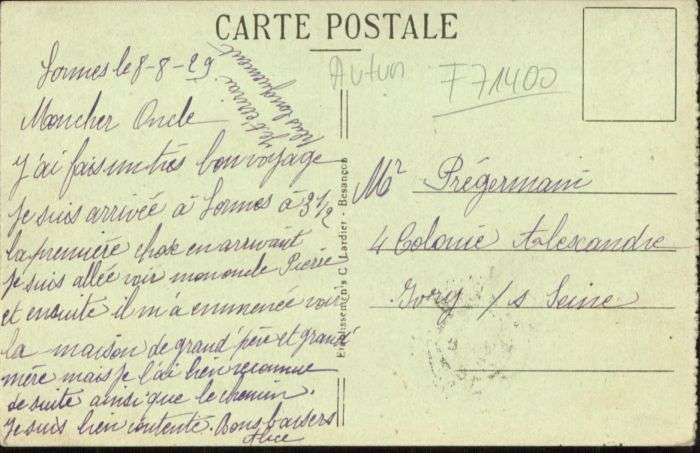 CARTE POSTALE
Autun
F71400
Lormes le 8-8-29
Mon cher Oncle
J'ai fais un très bon voyage
je suis arrivée à Lormes à 3 1/2
la première chose en arrivant
je suis allée voir mon oncle Pierre
et ensuite il m'a emmenée voir
la maison de grand'père et grand'
mère mais je l'ai bien reconnue
de suite ainsi que le chemin.
Je suis bien contente. Bons baisers
Alice
plus longuement
Etablissements C. Lardier - Besançon
Mr Prégermain
4 Colonie Alexandre
Ivry s/s Seine